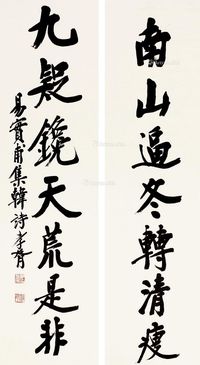 南山逼冬轉清瘦
九疑鑱天荒是非
易實甫集韓詩孝胥